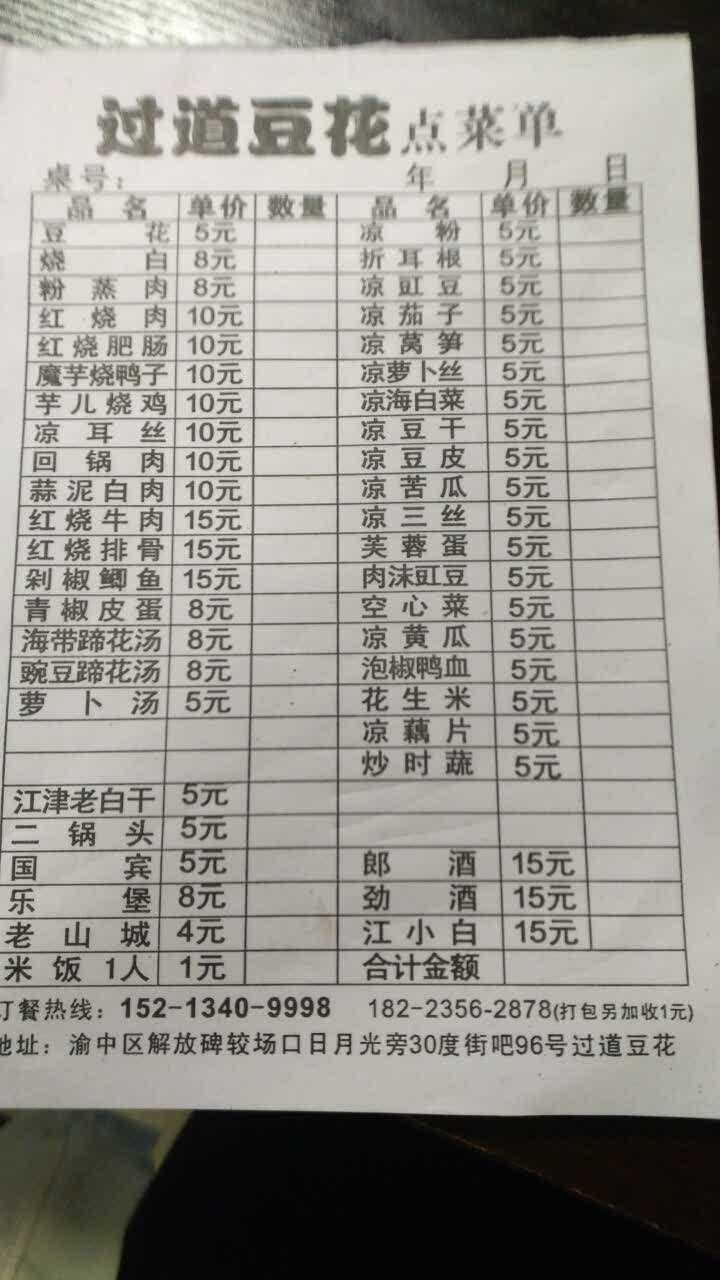 过道豆花点菜单
桌号： 年 月 日
品名 单价 数量 品名 单价 数量
豆花 5元 凉粉 5元
烧白 8元 折耳根 5元
粉蒸肉 8元 凉豇豆 5元
红烧肉 10元 凉茄子 5元
红烧肥肠 10元 凉莴笋 5元
魔芋烧鸭子 10元 凉萝卜丝 5元
芋儿烧鸡 10元 凉海白菜 5元
凉耳丝 10元 凉豆干 5元
回锅肉 10元 凉豆皮 5元
蒜泥白肉 10元 凉苦瓜 5元
红烧牛肉 15元 凉三丝 5元
红烧排骨 15元 芙蓉蛋 5元
剁椒鲫鱼 15元 肉沫豇豆 5元
青椒皮蛋 8元 空心菜 5元
海带蹄花汤 8元 凉黄瓜 5元
豌豆蹄花汤 8元 泡椒鸭血 5元
萝卜汤 5元 花生米 5元
凉藕片 5元
炒时蔬 5元
江津老白干 5元
二锅头 5元
国宾 5元 郎酒 15元
乐堡 8元 劲酒 15元
老山城 4元 江小白 15元
米饭1人 1元 合计金额
订餐热线：152-1340-9998 182-2356-2878(打包另加收1元)
地址：渝中区解放碑较场口日月光旁30度街吧96号过道豆花